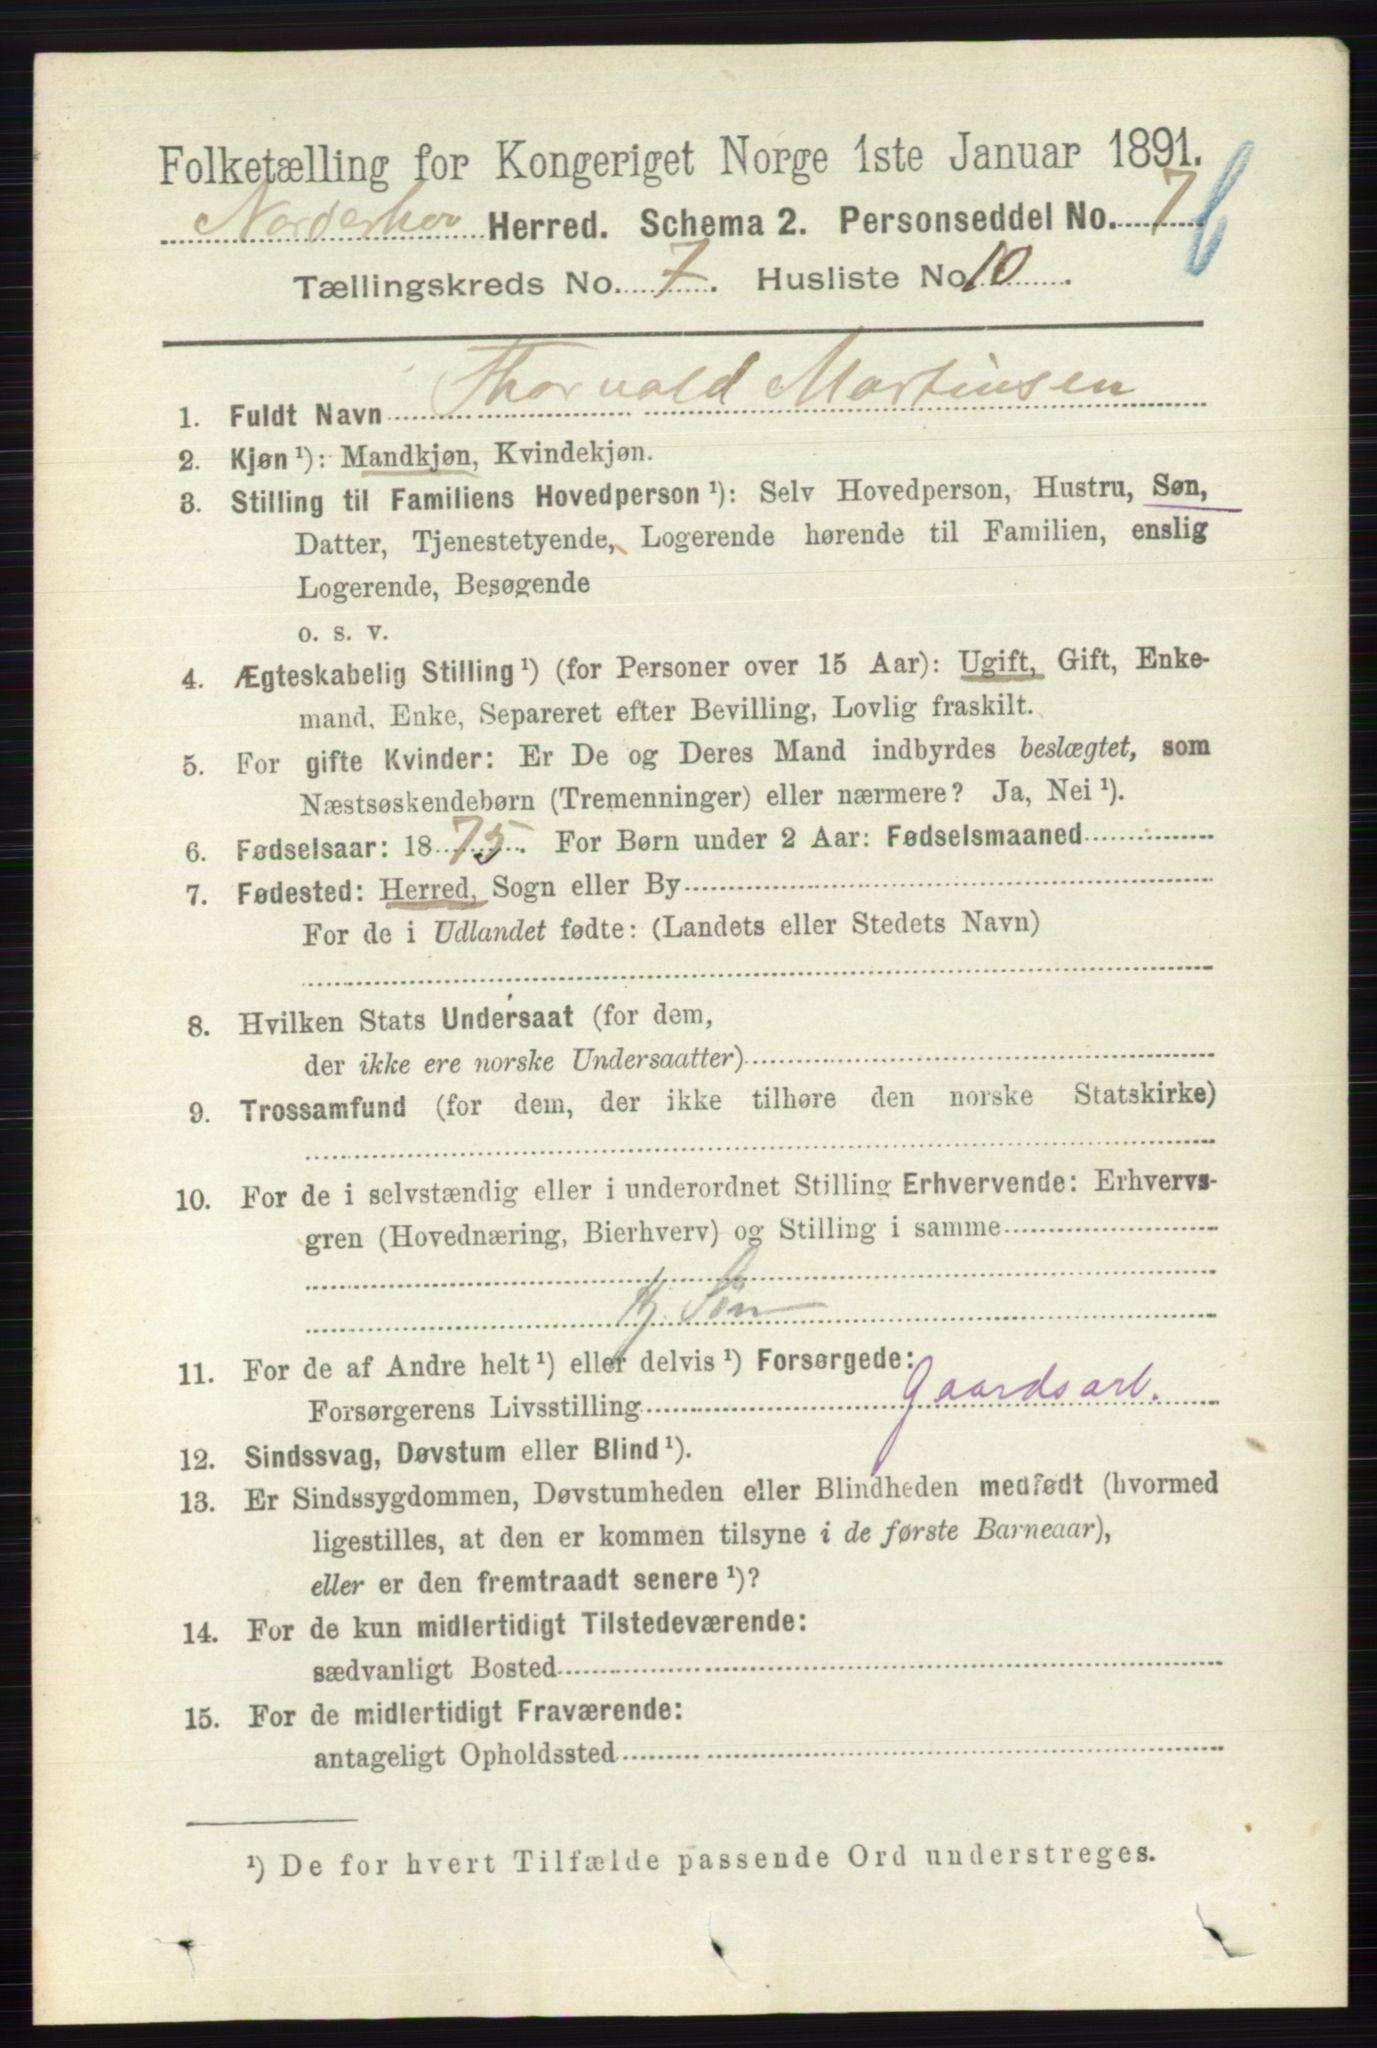 Folketælling for Kongeriget Norge 1ste Januar 1891.
Norderhov Herred. Schema 2. Personseddel No. 7 b
Tællingskreds No. 7. Husliste No 10.
1. Fuldt Navn Thorvald Martinsen
2. Kjøn ¹): Mandkjøn, Kvindekjøn.
3. Stilling til Familiens Hovedperson ¹): Selv Hovedperson, Hustru, Søn,
Datter, Tjenestetyende, Logerende hørende til Familien, enslig
Logerende, Besøgende
o. s. v.
4. Ægteskabelig Stilling ¹) (for Personer over 15 Aar): Ugift, Gift, Enke-
mand, Enke, Separeret efter Bevilling, Lovlig fraskilt.
5. For gifte Kvinder: Er De og Deres Mand indbyrdes beslægtet, som
Næstsøskendebørn (Tremenninger) eller nærmere? Ja, Nei ¹).
6. Fødselsaar: 1875. For Børn under 2 Aar: Fødselsmaaned
7. Fødested: Herred, Sogn eller By
For de i Udlandet fødte: (Landets eller Stedets Navn)
8. Hvilken Stats Undersaat (for dem,
der ikke ere norske Undersaatter)
9. Trossamfund (for dem, der ikke tilhøre den norske Statskirke)
10. For de i selvstændig eller i underordnet Stilling Erhvervende: Erhvervs-
gren (Hovednæring, Bierhverv) og Stilling i samme
Søn
11. For de af Andre helt ¹) eller delvis ¹) Forsørgede:
Forsørgerens Livsstilling Gaardsarb.
12. Sindssvag, Døvstum eller Blind ¹).
13. Er Sindssygdommen, Døvstumheden eller Blindheden medfødt (hvormed
ligestilles, at den er kommen tilsyne i de første Barneaar),
eller er den fremtraadt senere ¹)?
14. For de kun midlertidigt Tilstedeværende:
sædvanligt Bosted
15. For de midlertidigt Fraværende:
antageligt Opholdssted
¹) De for hvert Tilfælde passende Ord understreges.